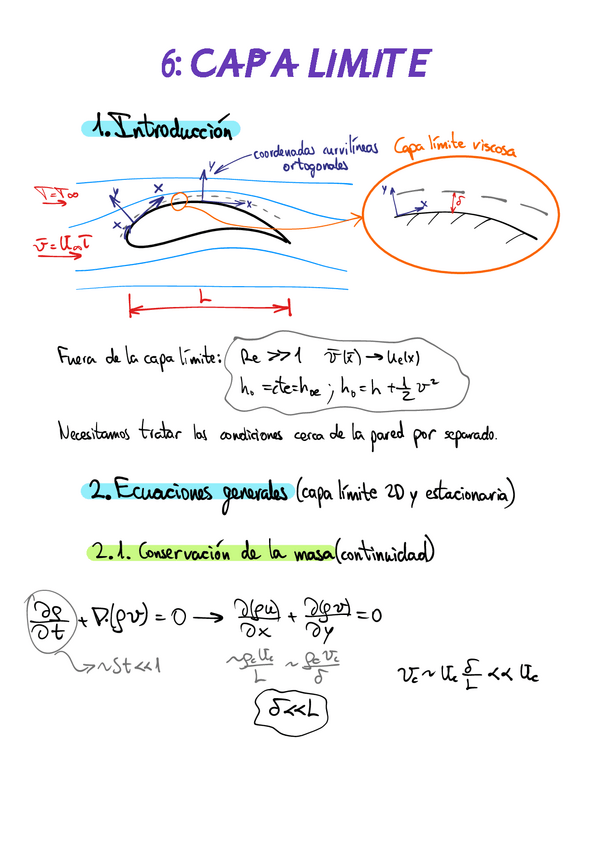 6: CAPA LIMITE
1. Introducción
coordenadas curvilíneas
ortogonales
Capa límite viscosa
T=T∞
v̄=U∞ī
y
x
y
x
x
y
x
δ
L
Fuera de la capa límite: Re >>1 v̄(x̄)→Ue(x)
h₀ =cte=h₀e ; h₀= h + 1/2 v²
Necesitamos tratar las condiciones cerca de la pared por separado.
2. Ecuaciones generales (capa límite 2D y estacionaria)
2.1. Conservación de la masa (continuidad)
∂ρ/∂t + ∇·(ρv̄) = 0 → ∂(ρu)/∂x + ∂(ρv)/∂y = 0
→~St<<1 ~ρc Uc/L ~ρc Vc/δ
Vc ~ Uc δ/L << Uc
δ<<L